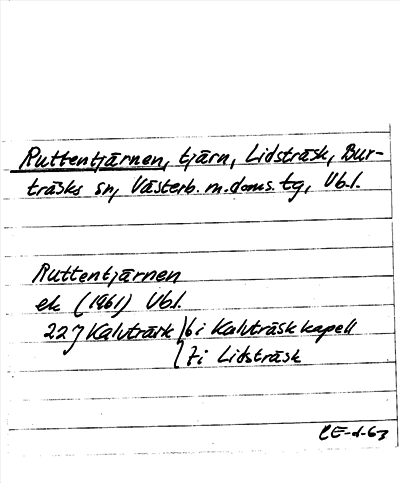 Ruttentjärnen, tjärn, Lidsträsk, Bur-
träsks sn, Västerb. m. doms. tg, Vb.l.
Ruttentjärnen
ek (1961) Vb.l.
22J Kalvträsk }6i Kalvträsk kapell
}7i Lidsträsk
CE-d-63